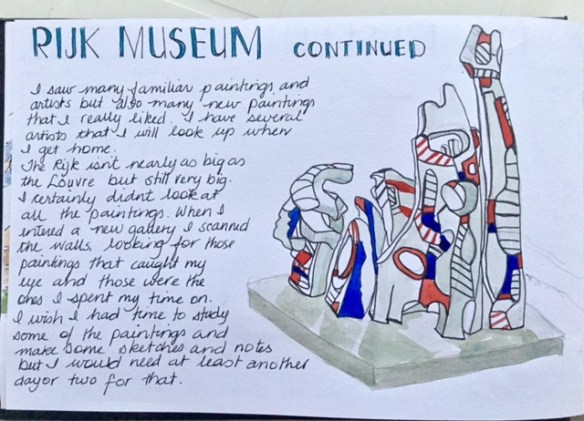 RIJK MUSEUM CONTINUED
I saw many familiar paintings and
artists but also many new paintings
that I really liked. I have several
artists that I will look up when
I get home.
The Rijk isn't nearly as big as
the Louvre but still very big.
I certainly didn't look at
all the paintings. When I
entered a new gallery I scanned
the walls, looking for those
paintings that caught my
eye and those were the
ones I spent my time on.
I wish I had time to study
some of the paintings and
make some sketches and notes
but I would need at least another
day or two for that.